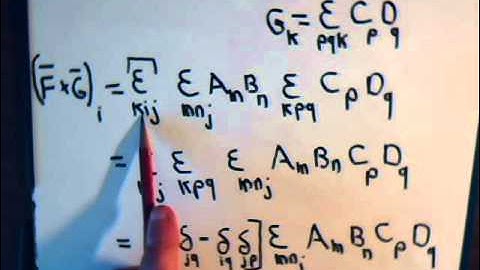 G_k = ε_pqk C_p D_q
(F̄ × Ḡ)_i = [ε_kij ε_mnj A_m B_n ε_kpq C_p D_q
= j ε_kpq ε_mnj A_m B_n C_p D_q
= δ_jq - δ_iq δ_jp] ε_mnj A_m B_n C_p D_q